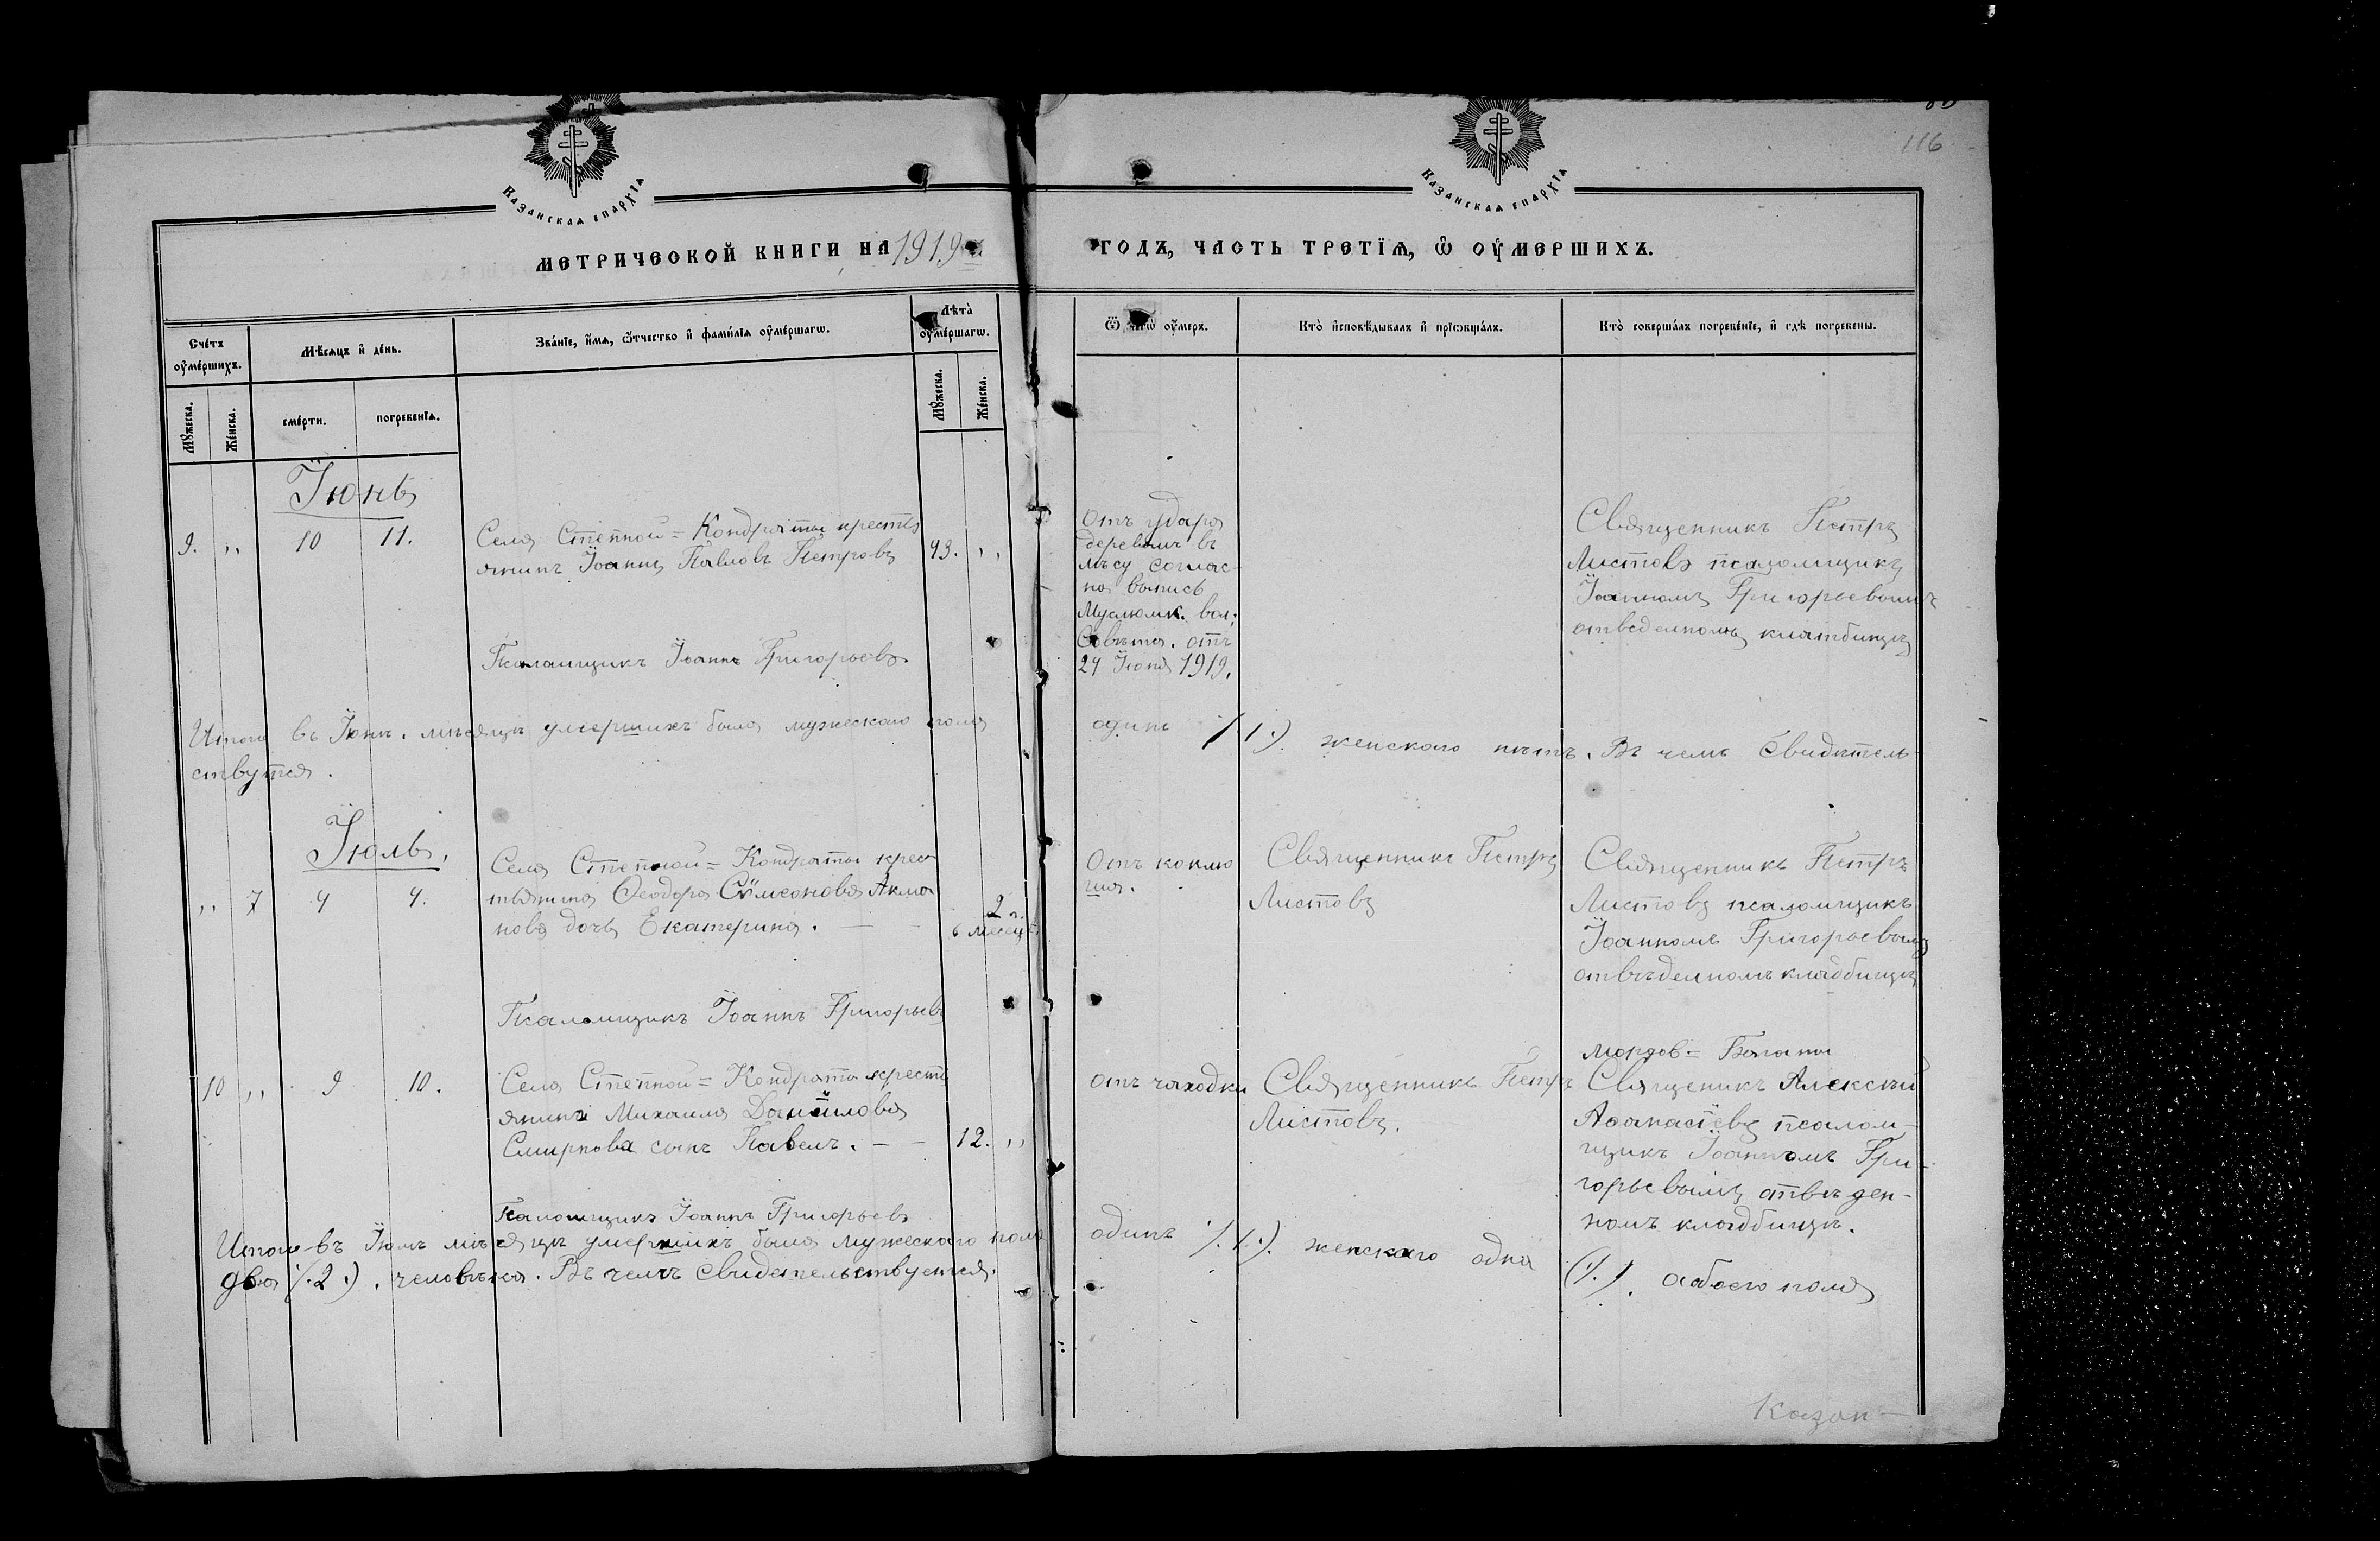 116
Казанская епархїя
Казанская епархїя
МЕТРИЧЕСКОЙ КНИГИ НА 1919
ГОДЪ, ЧАСТЬ ТРЕТЇѦ, Ѿ ОУМЕРШИХЪ.
Счетъ оумершихъ.
Мѣсяцъ и день.
Званїе, имѧ, ѿтчество и фамилїѧ оумершагѡ.
Лѣта оумершагѡ.
Ѿ чегѡ оумеръ.
Кто исповѣдывалъ и прїѡбщалъ.
Кто совершалъ погребенїе, и гдѣ погребены.
Мужеска.
Женска.
смерти.
погребенїѧ.
Мужеска.
Женска.
Іюнь
9. ,, 10 11.
Села Степной=Кондраты кресть
янинъ Іоаннъ Павловъ Петровъ 43. ,,
Отъ удара
деревомъ въ
лѣсу соглас-
но выпись
Муслюмк. вол.
Совѣта. отъ
24 Іюня 1919.
Священникъ Петръ
Листовъ псаломщикъ
Іоанномъ Григорьевымъ
отведенномъ клатбищѣ
Псаломщикъ Іоаннъ Григорьевъ
Итого въ Іюнѣ. мѣсяцѣ умершихъ было мужескаго пола одинъ (1.) женскаго нѣтъ. Въ чемъ свидѣтель-
ствутся.
Іюль.
,, 7 4 4.
Села Степной=Кондраты крес
тьянина Ѳеодора Сѵмеонова Акма
нова дочь Екатерина. — 2 г.
6 месец
Отъ коклю
ша.
Священникъ Петръ
Листовъ
Священникъ Петръ
Листовъ псаломщикъ
Іоанномъ Григорьевымъ
отвѣденномъ кладбищѣ
Псаломщикъ Іоаннъ Григорьевъ
10 ,, 9 10.
Села Степной=Кондраты кресть
янина Михаила Данїилова
Смирнова сынъ Павелъ. — — 12. ,,
отъ чаходки
Священникъ Петръ
Листовъ.
Священикъ Алексѣй
Аѳанасїевъ псалом-
щикъ Іоанномъ Гри-
горьевымъ отвѣден-
номъ кладбищѣ.
Псаломщикъ Іоаннъ Григорьевъ
Итого въ Іюлѣ мѣсяцѣ умершихъ было мужескаго пола одинъ (1.) женскаго одна (1.). обоего пола
два (2.). человѣка. Въ чемъ свидетельствуется.
Казан-